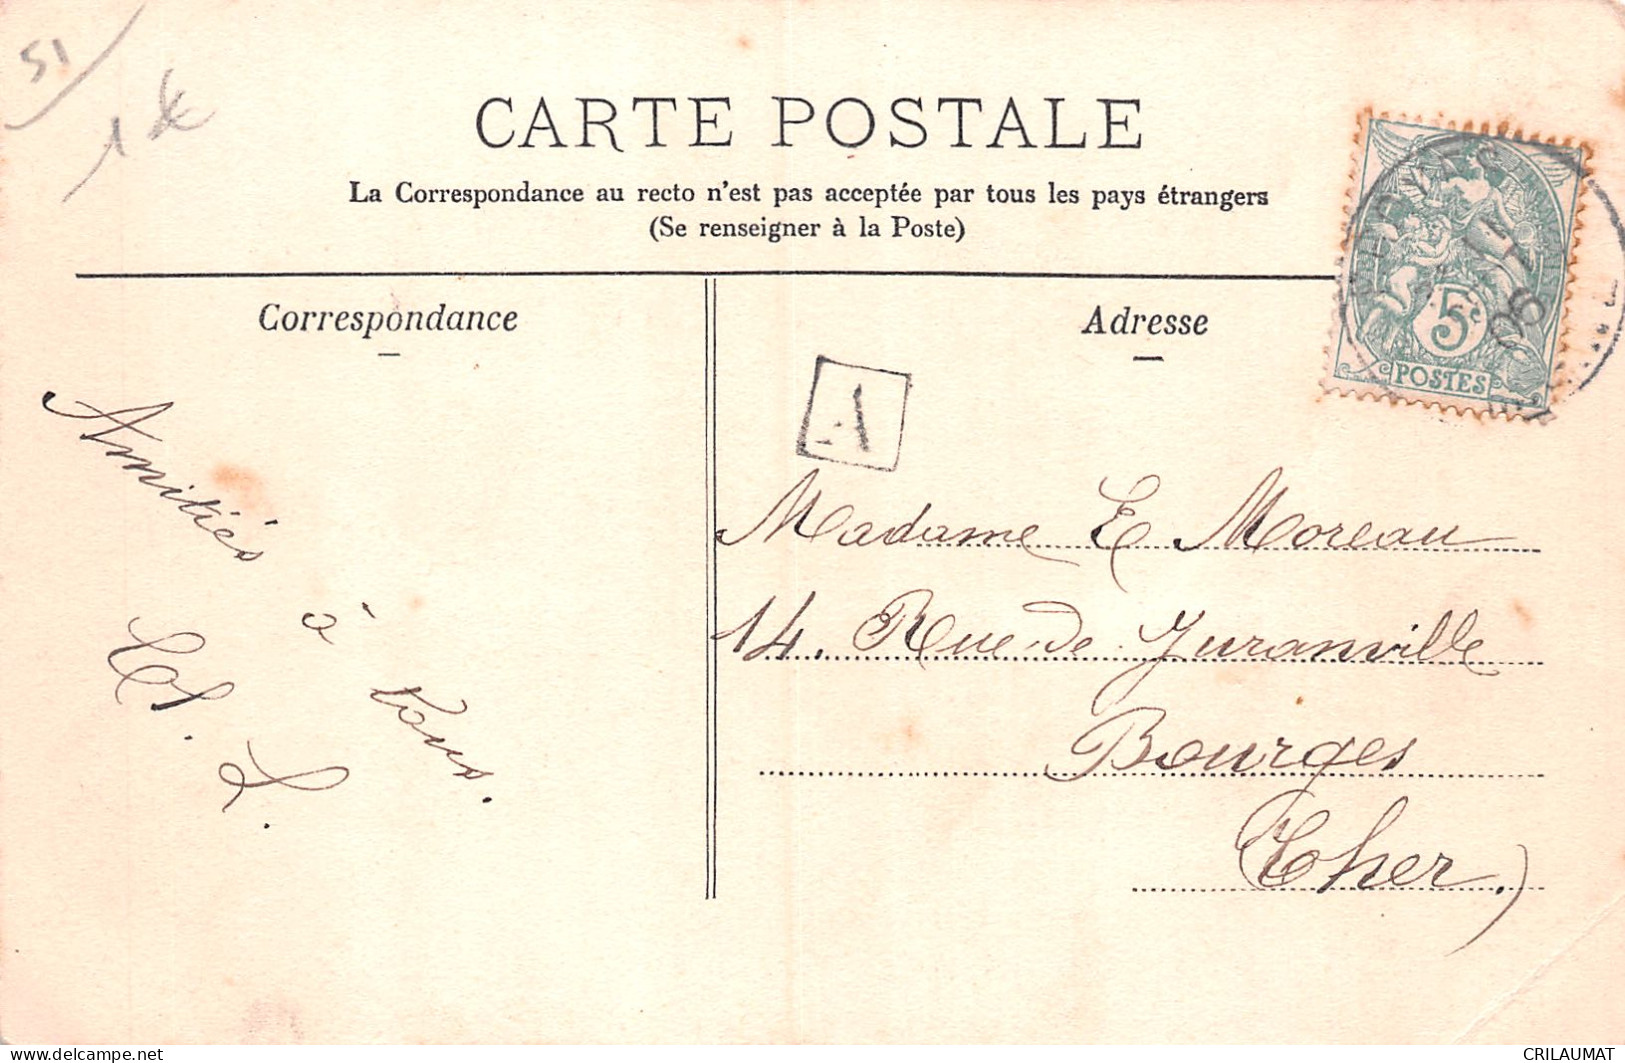 51
1 €
CARTE POSTALE
La Correspondance au recto n'est pas acceptée par tous les pays étrangers
(Se renseigner à la Poste)
Correspondance
Adresse
5c
POSTES
06
A
Amitiés
à
tous.
Madame E Moreau
14. Rue de Juranville
Bourges
(Cher.)
Delcampe.net
CRILAUMAT